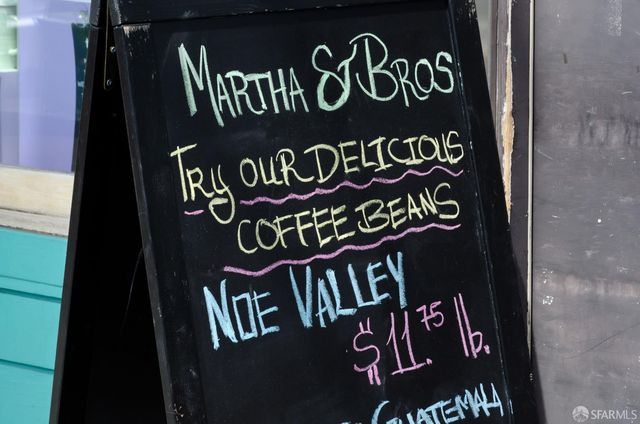 Martha & Bros
Try our delicious
coffee beans
Noe Valley
$11.75 lb.
Guatemala
SFARMLS